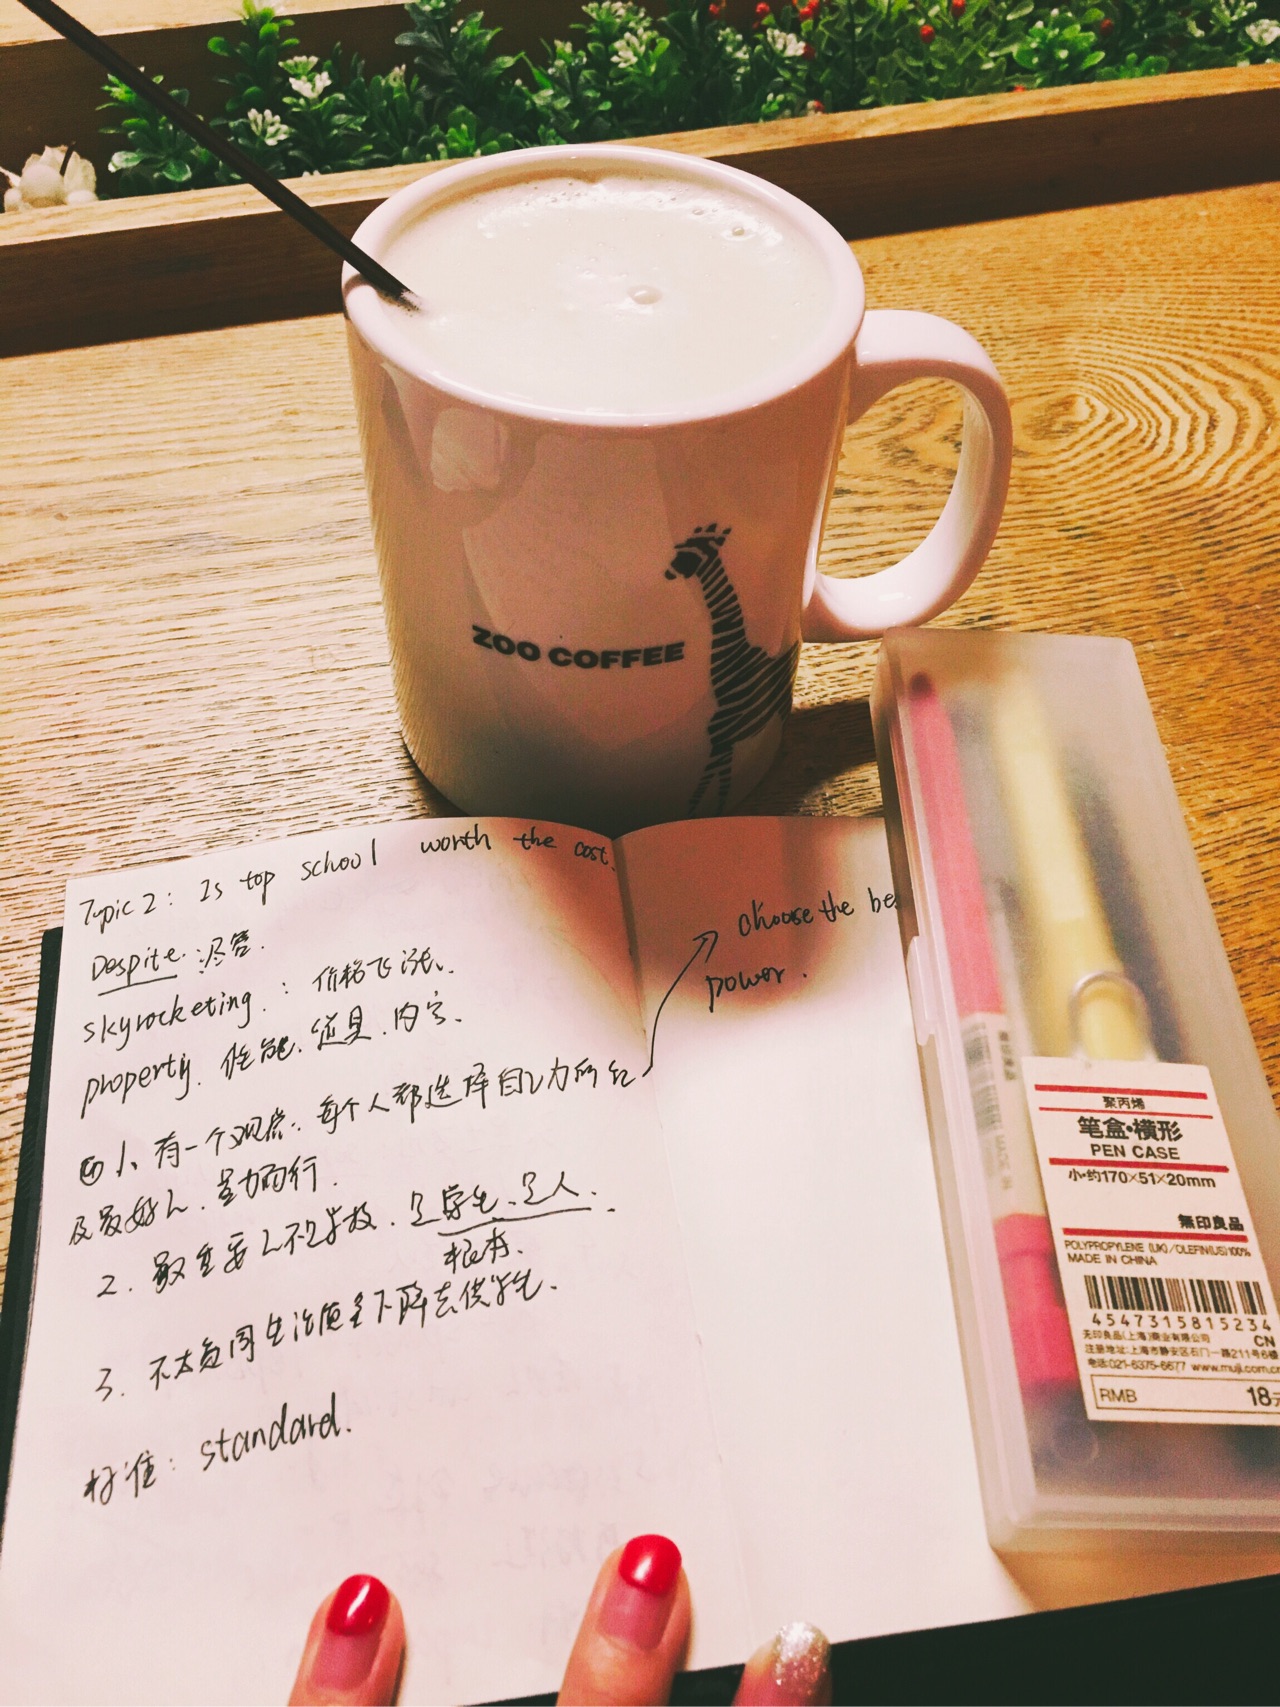 ZOO COFFEE
Topic 2: Is top school worth the cost.
Despite: 尽管.
skyrocketing: 价格飞涨.
property. 性能. 道具. 内容.
1. 有一个观点: 每个人都选择自己力所能
及最好的. 量力而行.
2. 最重要的不是学校. 是学生. 是人.
根本.
3. 不太负同生活质量下降去供学生.
标准: standard.
choose the be
power.
聚丙烯
笔盒·横形
PEN CASE
小·约170×51×20mm
無印良品
POLYPROPYLENE (UK)/OLEFIN(US)100%
MADE IN CHINA
4547315815234
无印良品(上海)商业有限公司 CN
注册地址:上海市静安区石门一路211号6楼
电话:021-6375-6677 www.muji.com.cn
RMB 18元